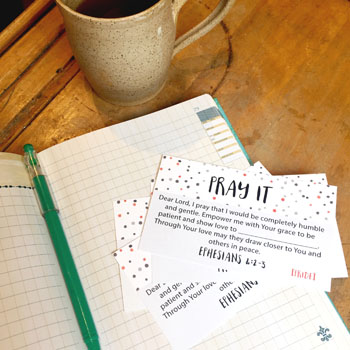 PRAY IT
Dear Lord, I pray that I would be completely humble
and gentle. Empower me with Your grace to be
patient and show love to ____________________
Through Your love may they draw closer to You and
others in peace.
EPHESIANS 4:2-3
Dear
and
patient and
Through Your love